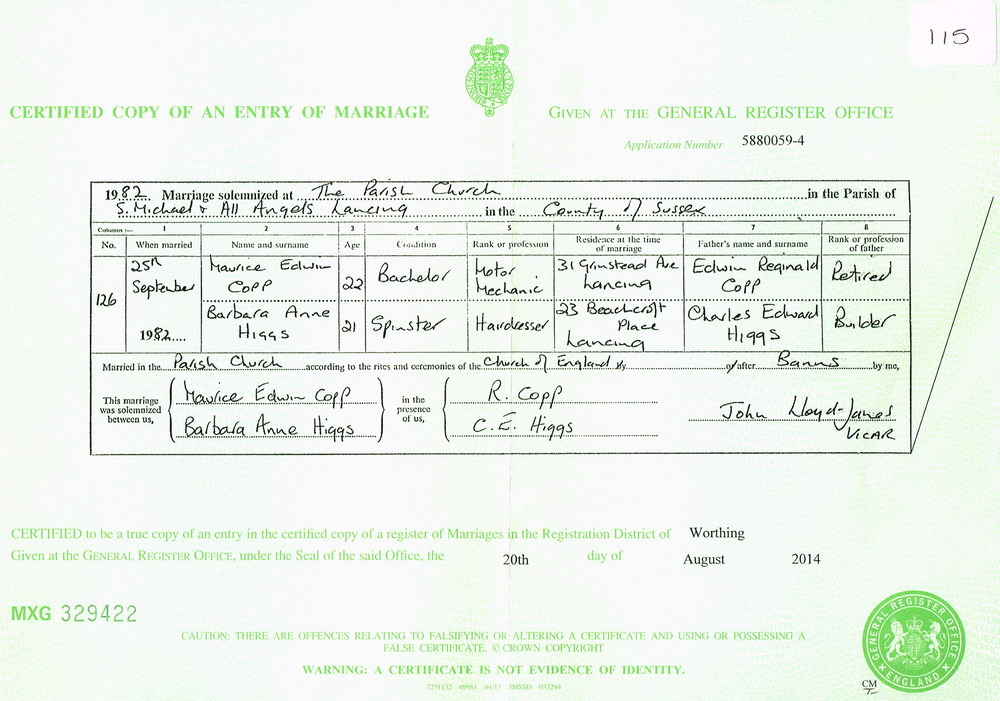 115
CERTIFIED COPY OF AN ENTRY OF MARRIAGE
GIVEN AT THE GENERAL REGISTER OFFICE
Application Number 5880059-4
1982 Marriage solemnized at The Parish Church in the Parish of
S. Michael & All Angels Lancing in the County of Sussex
Columns :— 1 2 3 4 5 6 7 8
No. When married Name and surname Age Condition Rank or profession Residence at the time of marriage Father's name and surname Rank or profession of father
126 25th September 1982 Maurice Edwin Copp 22 Bachelor Motor Mechanic 31 Grinstead Ave Lancing Edwin Reginald Copp Retired
Barbara Anne Higgs 21 Spinster Hairdresser 23 Beachcroft Place Lancing Charles Edward Higgs Builder
Married in the Parish Church according to the rites and ceremonies of the Church of England by or after Banns by me,
This marriage was solemnized between us,
Maurice Edwin Copp
Barbara Anne Higgs
in the presence of us,
R. Copp
C. E. Higgs
John Lloyd-James
VICAR
CERTIFIED to be a true copy of an entry in the certified copy of a register of Marriages in the Registration District of Worthing
Given at the GENERAL REGISTER OFFICE, under the Seal of the said Office, the 20th day of August 2014
MXG 329422
CAUTION: THERE ARE OFFENCES RELATING TO FALSIFYING OR ALTERING A CERTIFICATE AND USING OR POSSESSING A
FALSE CERTIFICATE. © CROWN COPYRIGHT
WARNING: A CERTIFICATE IS NOT EVIDENCE OF IDENTITY.
GENERAL REGISTER OFFICE
ENGLAND
CM